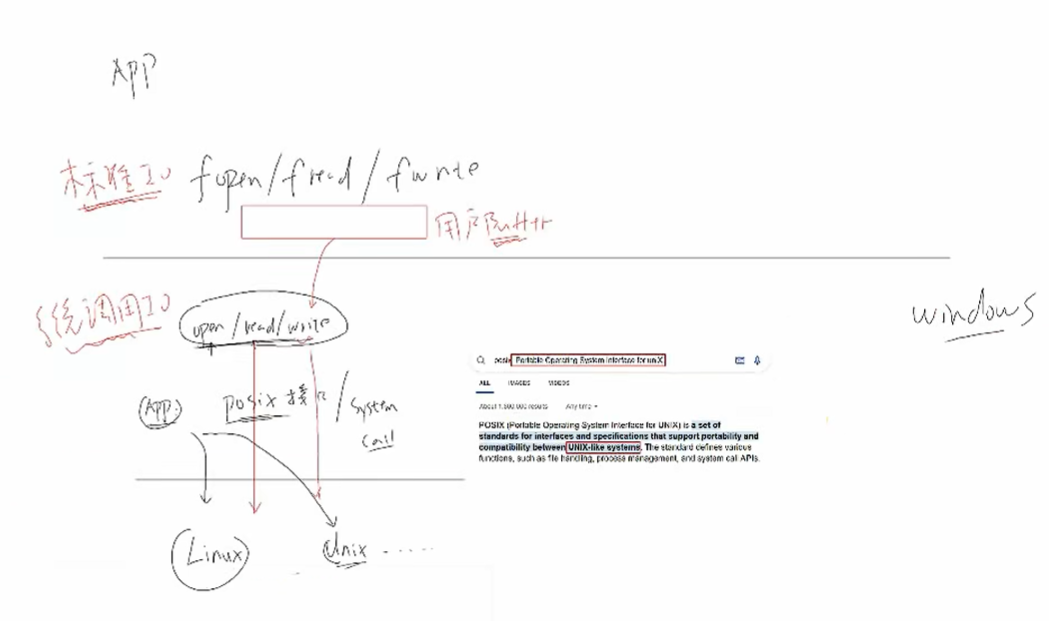 APP
标准IO fopen/fread/fwrite
用户Buffer
系统调用IO
open/read/write
windows
posix Portable Operating System Interface for uniX
ALL IMAGES VIDEOS
About 1,300,000 results Any time
POSIX (Portable Operating System Interface for UNIX) is a set of
standards for interfaces and specifications that support portability and
compatibility between UNIX-like systems. The standard defines various
functions, such as file handling, process management, and system call APIs.
APP
posix 接口 / System
call
Linux
Unix ......